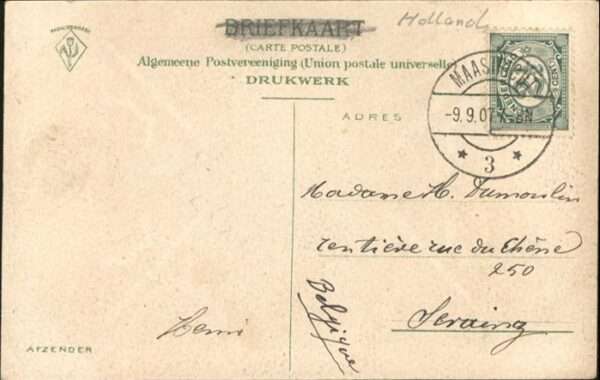 BRIEFKAART
Holland
(CARTE POSTALE)
Algemeene Postvereeniging (Union postale universelle)
DRUKWERK
MAAS
-9.9.07
3
ADRES
Madame H. Dumoulin
rentière rue du Chêne
250
Seraing
Belgique
Henri
AFZENDER